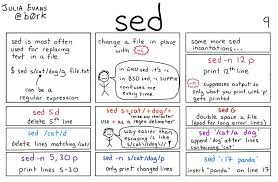 JULIA EVANS
@b0rk
sed
9
sed is most often
used for replacing
text in a file
$ sed s/cat/dog/g file.txt
can be a
regular expression
change a file in place
with -i
in GNU sed it's -i
in BSD sed, -i SUFFIX
confuses me
every time.
some more sed
incantations...
sed -n 12 p
print 12th line
-n suppresses output so
only what you print with 'p'
gets printed
sed 5d
delete 5th line
sed /cat/d
delete lines matching /cat/
sed -n 5,30 p
print lines 5-30
sed s+cat/+dog/+
use + as a regex delimiter
way easier than
escaping /s like
s/cat\//dog\//!
sed -n s/cat/dog/p
only print changed lines
sed G
double space a file
sed '/cat/a dog'
append 'dog' after lines
containing 'cat'
sed 'i 17 panda'
insert "panda" on line 17